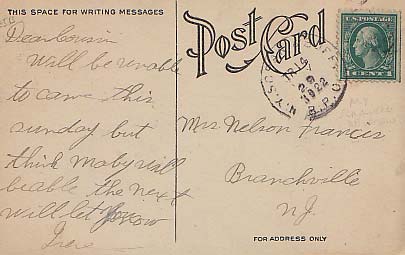 THIS SPACE FOR WRITING MESSAGES
Post Card
Dear Cousin
Will be unable
to came this
sunday but
think maby will
beable the next
will let you know
U.S. POSTAGE
1 CENT 1
1922
R.P.O.
Mrs Nelson Francis
Branchville
N.J.
FOR ADDRESS ONLY